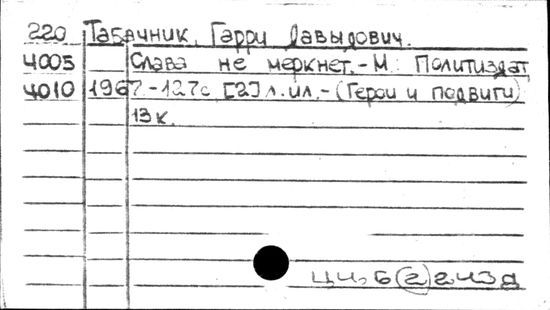 220 Табачник, Гарри Давыдович.
4005 Слава не меркнет.-М.: Политиздат,
4010 1967.-127с. [2]л.ил.-(Герои и подвиги)
13к.